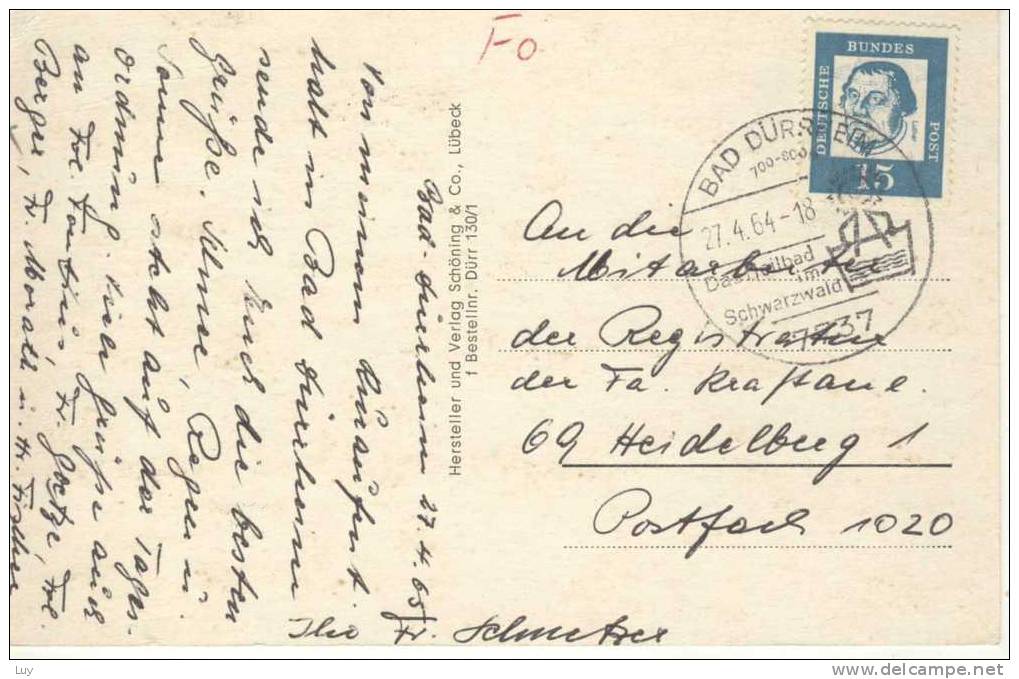 Fo
DEUTSCHE
BUNDES
POST
15
BAD DÜRRHEIM
700-800
27.4.64-18
Das Heilbad
im
Schwarzwald
7737
Hersteller und Verlag Schöning & Co., Lübeck
1 Bestellnr. Dürr 130/1
Bad-Dürrheim 27.4.65
Von meinem Kuraufent
halt in Bad Dürrheim
sende ich Euch die besten
Grüße. Schnee, Regen u.
Sonne steht auf der Tages-
ordnung. Viele Grüße auch
an Frl. Fr. Goetze, Frl.
Berger, Fr. Morath u. H. Fischer
Fr.
An die
Mitarbeiter
der Registratur
der Fa.
69 Heidelberg 1
Postfach 1020
Luy
www.delcampe.net